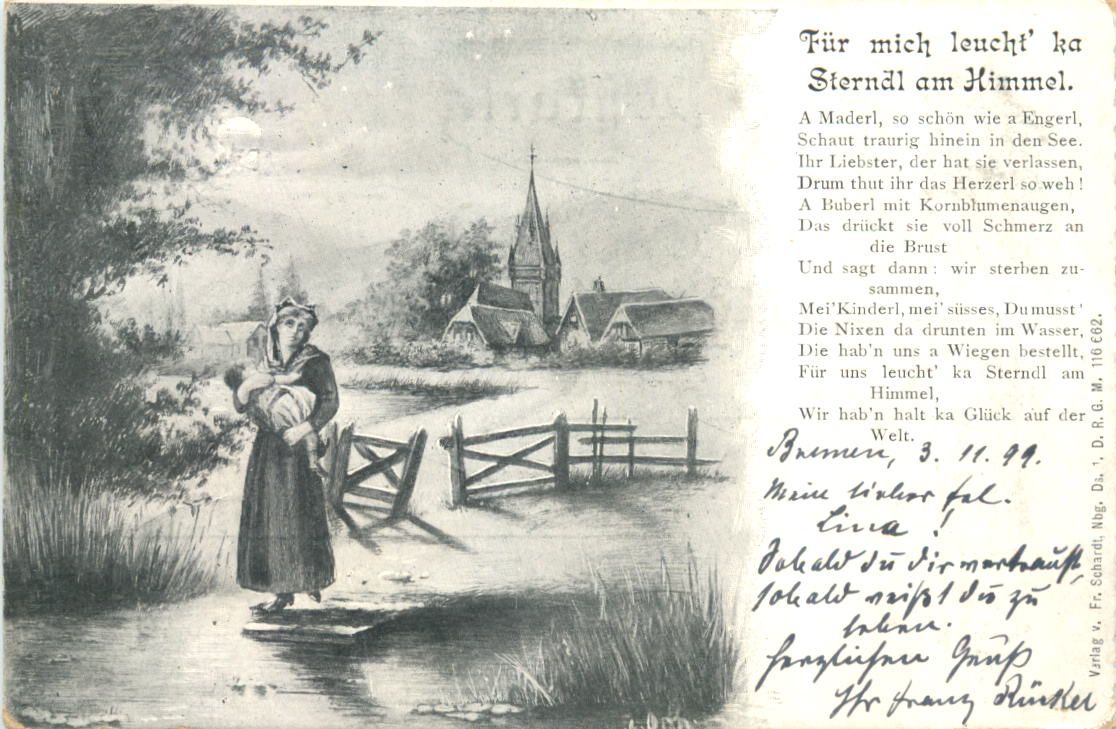 Für mich leucht' ka
Sterndl am Himmel.
A Maderl, so schön wie a Engerl,
Schaut traurig hinein in den See.
Ihr Liebster, der hat sie verlassen,
Drum thut ihr das Herzerl so weh!
A Buberl mit Kornblumenaugen,
Das drückt sie voll Schmerz an
die Brust
Und sagt dann: wir sterben zu-
sammen,
Mei' Kinderl, mei' süsses, Du musst'
Die Nixen da drunten im Wasser,
Die hab'n uns a Wiegen bestellt,
Für uns leucht' ka Sterndl am
Himmel,
Wir hab'n halt ka Glück auf der
Welt.
Bremen, 3. 11. 99.
Mein lieber Frl.
Lina!
Sobald du dir vertraust,
sobald weißt du zu
leben.
Herzlichen Gruß
Ihr Franz Rünker
Verlag v. Fr. Schardt, Nbg. Ds. 1. D. R. G. M. 116662.